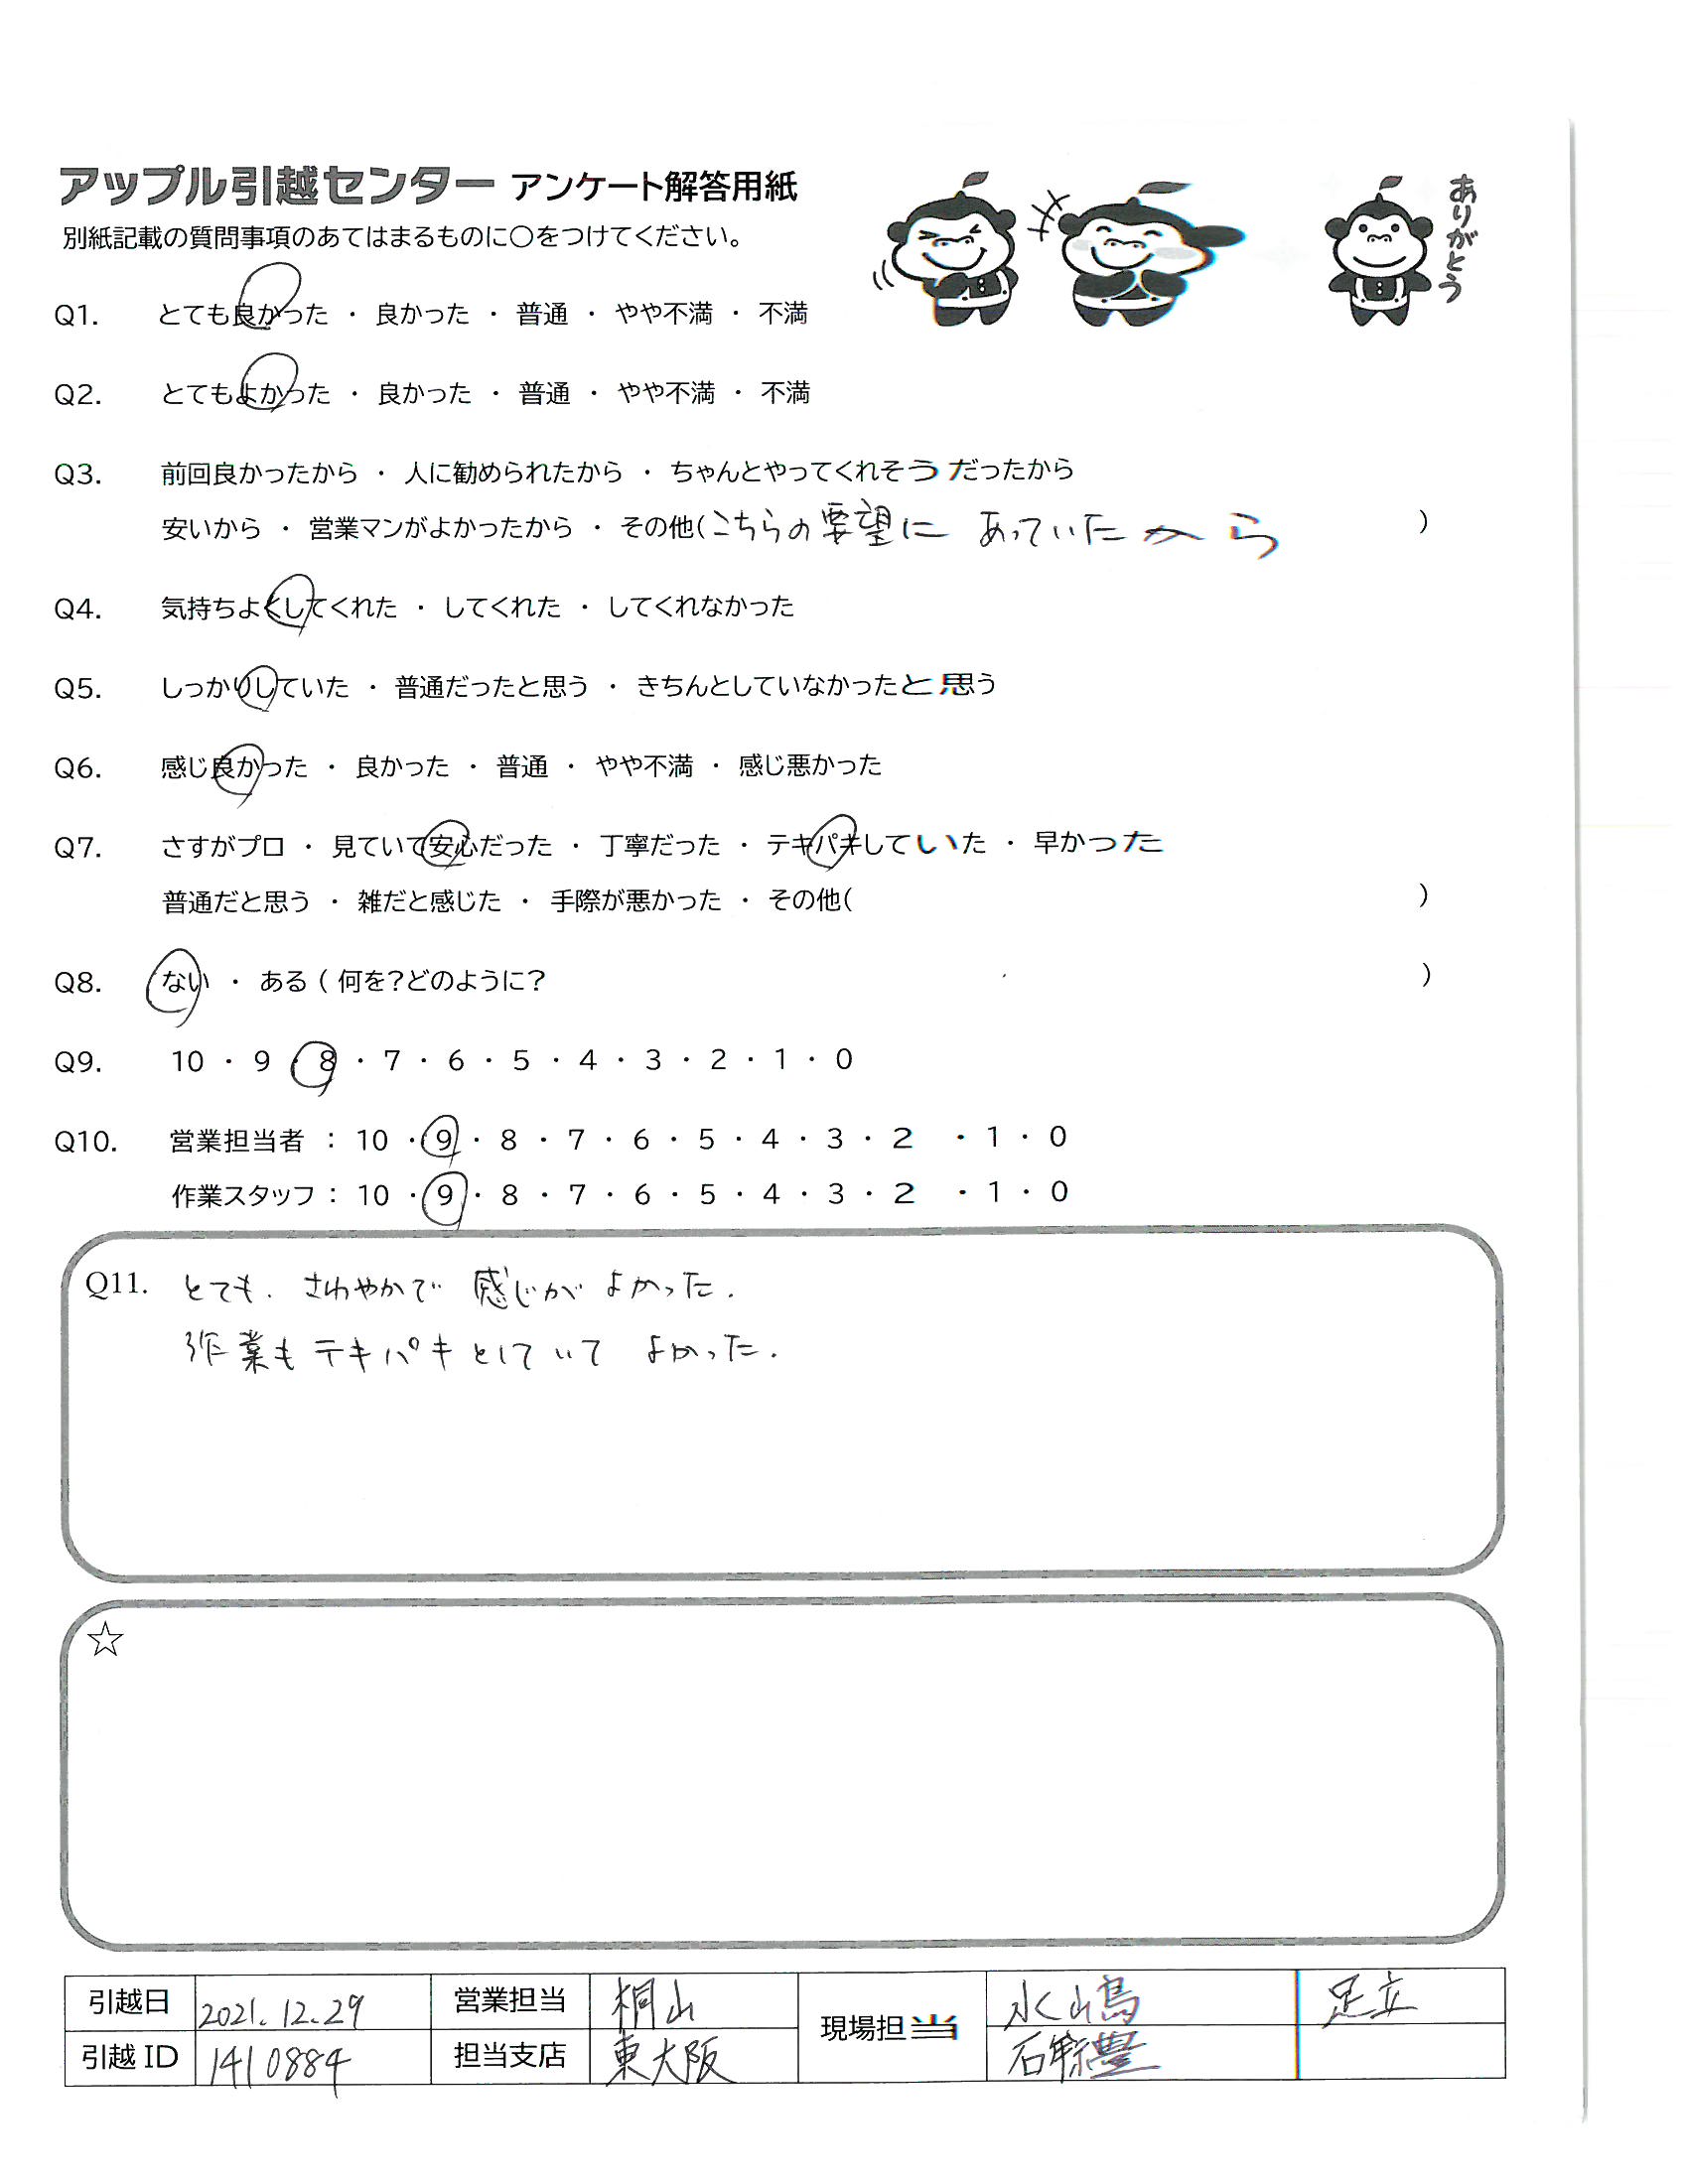 アップル引越センター アンケート解答用紙
ありがとう
別紙記載の質問事項のあてはまるものに〇をつけてください。
Q1. とても良かった ・ 良かった ・ 普通 ・ やや不満 ・ 不満
Q2. とてもよかった ・ 良かった ・ 普通 ・ やや不満 ・ 不満
Q3. 前回良かったから ・ 人に勧められたから ・ ちゃんとやってくれそうだったから
安いから ・ 営業マンがよかったから ・ その他(こちらの要望に あっていたから )
Q4. 気持ちよくしてくれた ・ してくれた ・ してくれなかった
Q5. しっかりしていた ・ 普通だったと思う ・ きちんとしていなかったと思う
Q6. 感じ良かった ・ 良かった ・ 普通 ・ やや不満 ・ 感じ悪かった
Q7. さすがプロ ・ 見ていて安心だった ・ 丁寧だった ・ テキパキしていた ・ 早かった
普通だと思う ・ 雑だと感じた ・ 手際が悪かった ・ その他( )
Q8. ない ・ ある ( 何を?どのように? )
Q9. 10 ・ 9 ・ 8 ・ 7 ・ 6 ・ 5 ・ 4 ・ 3 ・ 2 ・ 1 ・ 0
Q10. 営業担当者 : 10 ・ 9 ・ 8 ・ 7 ・ 6 ・ 5 ・ 4 ・ 3 ・ 2 ・ 1 ・ 0
作業スタッフ : 10 ・ 9 ・ 8 ・ 7 ・ 6 ・ 5 ・ 4 ・ 3 ・ 2 ・ 1 ・ 0
Q11. とても、さわやかで 感じが よかった.
作業もテキパキとしていて よかった.
☆
引越日 2021.12.29 営業担当 桐山 現場担当 水嶋 足立
引越 ID 1410884 担当支店 東大阪